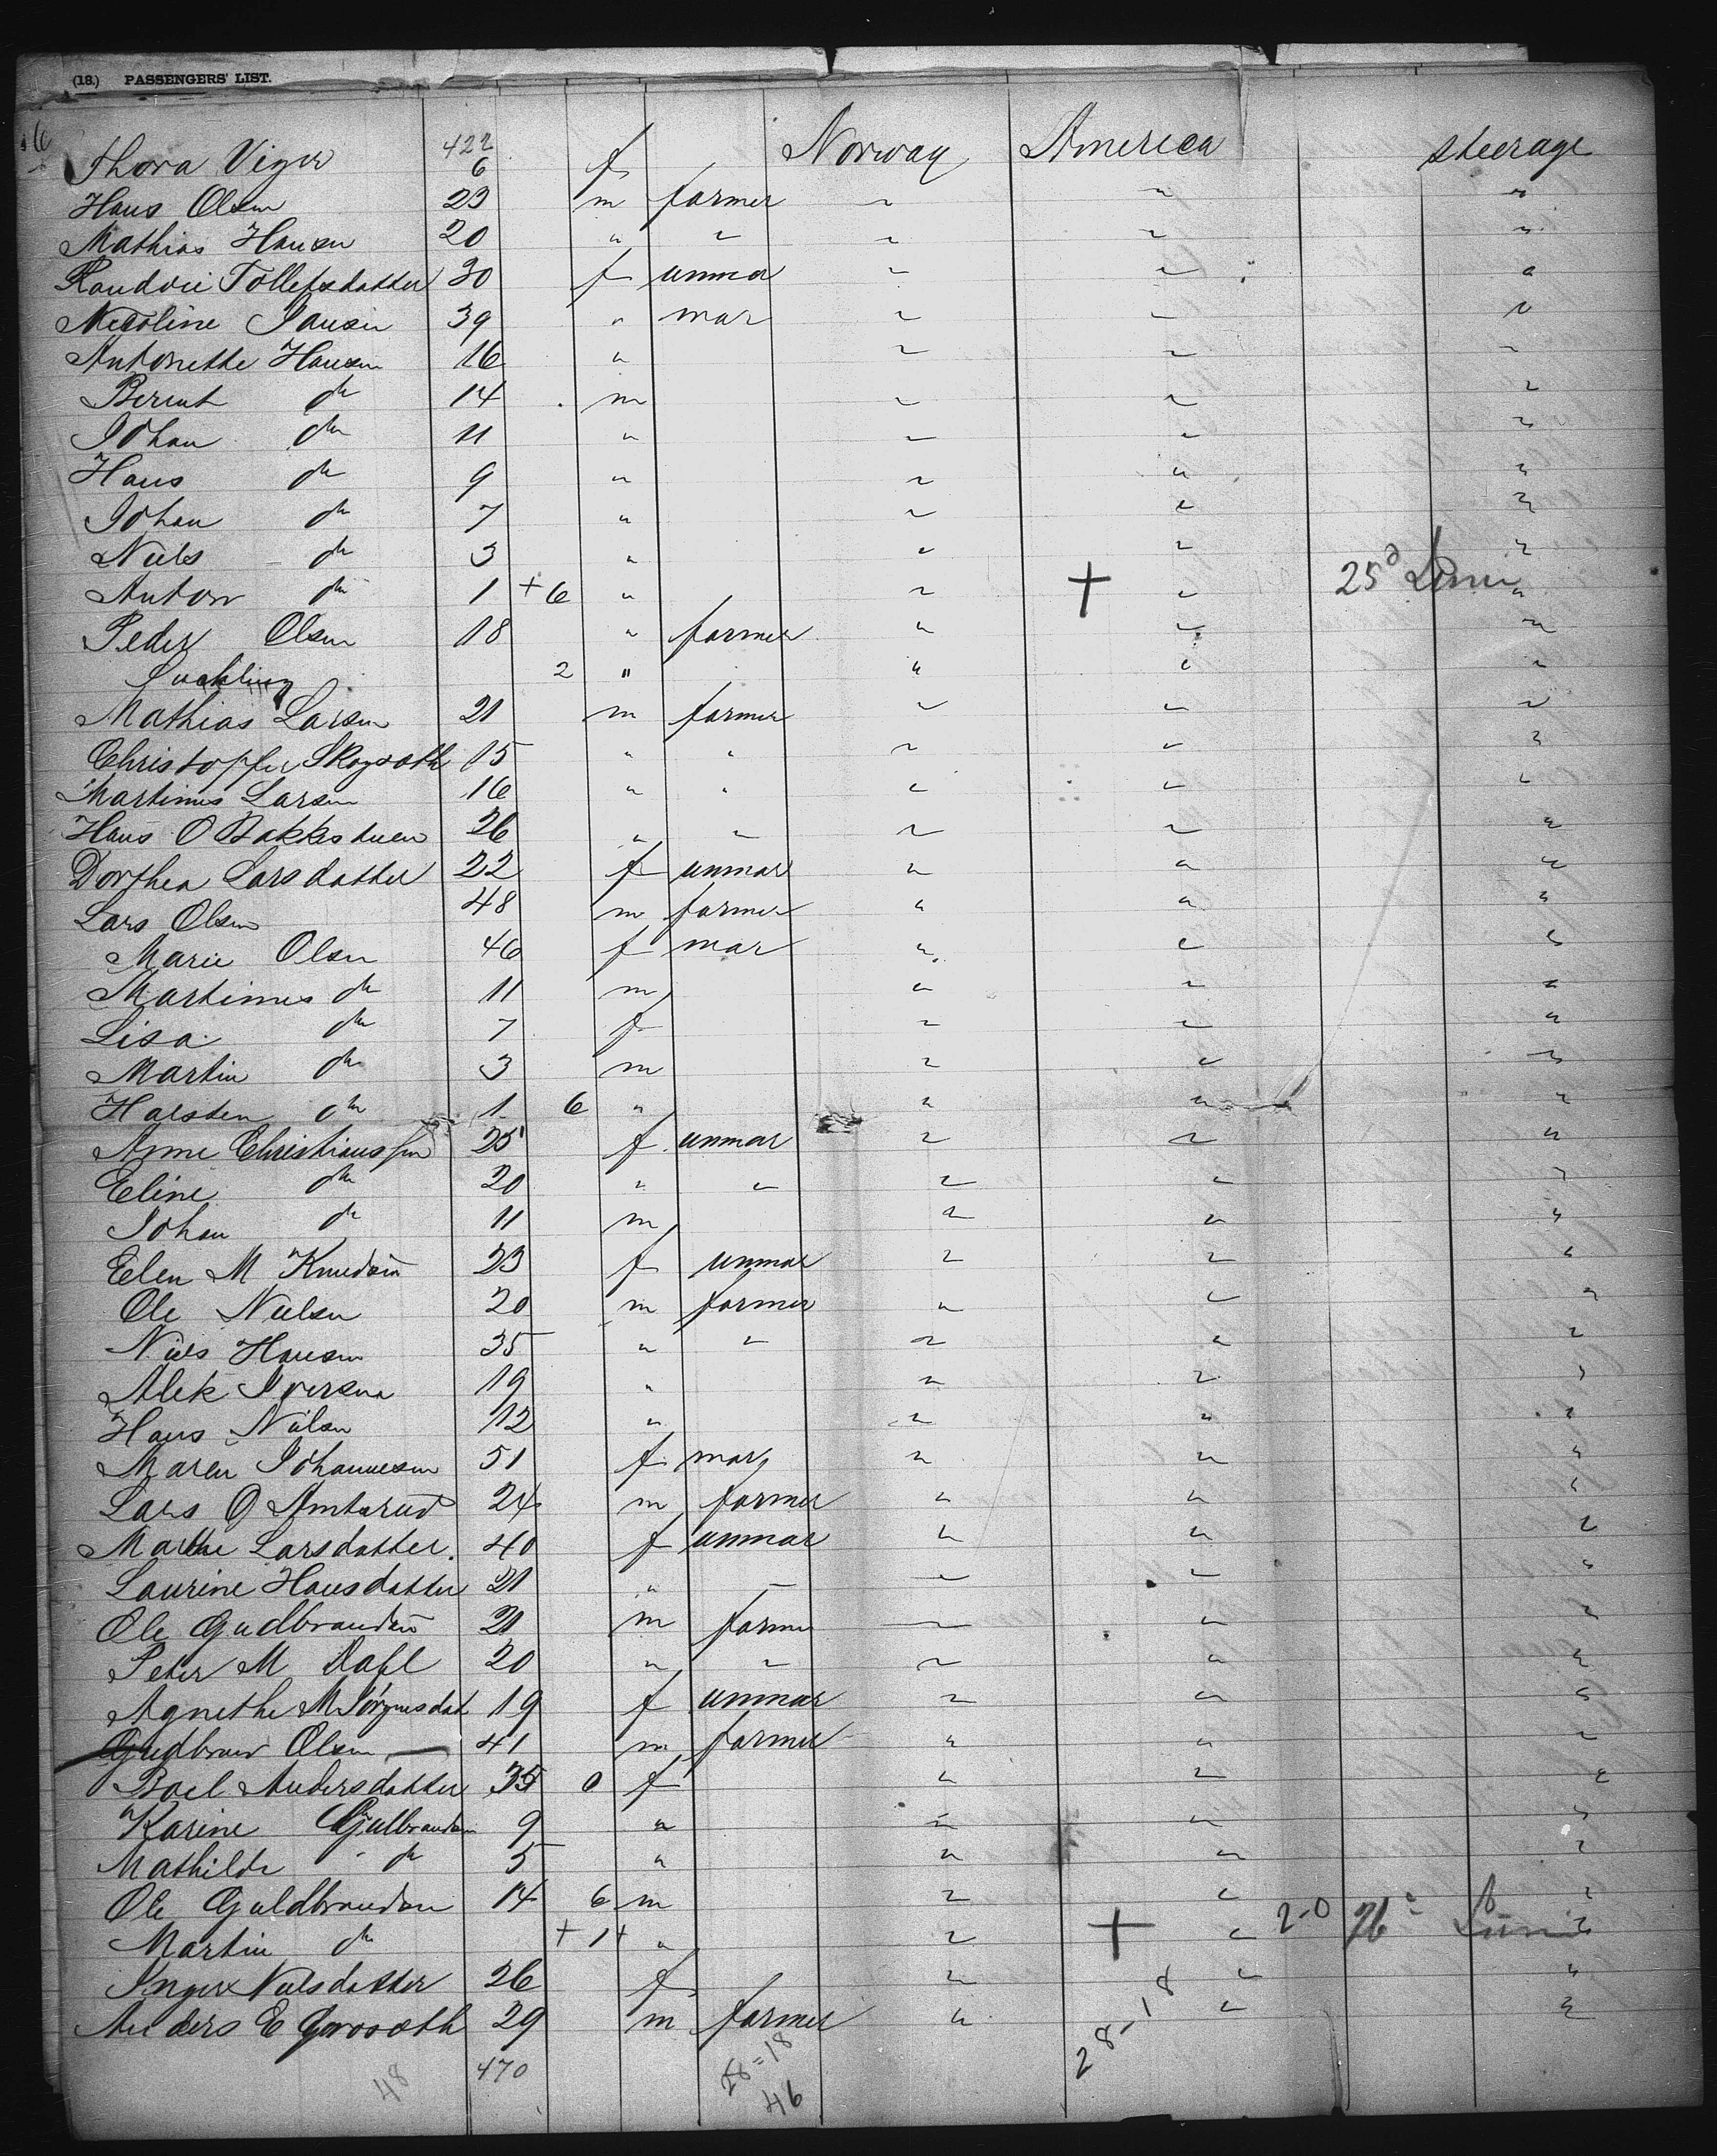 (18.) PASSENGERS' LIST.
422
Thora Viger 6 f Norway America steerage
Hans Olsen 23 m farmer " " "
Mathias Hansen 20 " " " " "
Tollefsdatter 30 f unmar " " "
Nicoline Jansen 39 " mar " " "
Antonette Hansen 16 " " " "
Bernt do 14 m " " "
Johan do 11 " " " "
Hans do 9 " " " "
Johan do 7 " " " "
Niels do 3 " " " "
Anton do 1 + 6 " " + " 25 "
Peder Olsen 18 " farmer " " "
Suckling 2 " " " "
Mathias Larsen 21 m farmer " " "
Christopher 15 " " " " "
Martinus Larsen 16 " " " " "
Hans O Bakkestuen 26 " " " " "
Dorthea Larsdatter 22 f unmar " " "
Lars Olsen 48 m farmer " " "
Marie Olsen 46 f mar " " "
Martinus do 11 m " " "
Lisa do 7 f " " "
Martin do 3 m " " "
Harsten do 1 6 " " " "
Anne Christianssen 25 f unmar " " "
Eline do 20 " " " " "
Johan do 11 m " " "
Elen M Knudsen 23 f unmar " " "
Ole Nielsen 20 m farmer " " "
Niels Hansen 35 " " " " "
Alek Iversen 19 " " " "
Hans Nielsen 12 " " " "
Maren Johannesen 51 f mar " " "
Lars O Amtsrud 24 m farmer " " "
Marthe Larsdatter. 40 f unmar " " "
Laurine Hansdatter 21 " " " " "
Ole Gudbrandsen 21 m farmer " " "
Peter M Dahl 20 " " " " "
Agnethe M Jörgensdat 19 f unmar " " "
Gudbrand Olsen 41 m farmer " " "
Boel Andersdatter 35 0 f " " "
Karine Gulbrandsen 9 " " " "
Mathilde do 5 " " " "
Ole Guldbrandsen 14 6 m " " "
Martin do + 1 + " " + " 2-0 26 "
Inger Nielsdatter 26 f " " "
Anders E 29 m farmer " " "
28-18
48 470 28=18
46